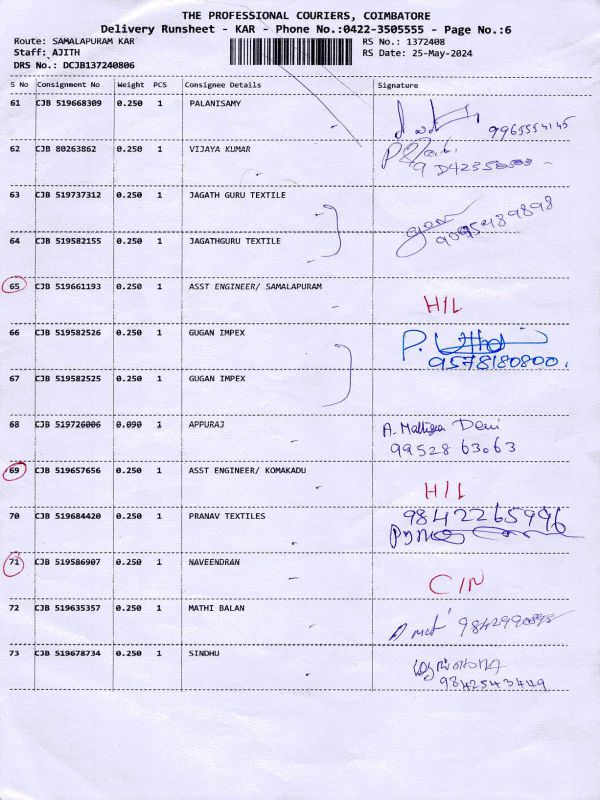 THE PROFESSIONAL COURIERS, COIMBATORE
Delivery Runsheet - KAR - Phone No.:0422-3505555 - Page No.:6
Route: SAMALAPURAM KAR RS No.: 1372408
Staff: AJITH RS Date: 25-May-2024
DRS No.: DCJB137240806
S No Consignment No Weight PCS Consignee Details Signature
61 CJB 519668309 0.250 1 PALANISAMY
9965554145
62 CJB 80263862 0.250 1 VIJAYA KUMAR
63 CJB 519737312 0.250 1 JAGATH GURU TEXTILE
9095489898
64 CJB 519582155 0.250 1 JAGATHGURU TEXTILE
65 CJB 519661193 0.250 1 ASST ENGINEER/ SAMALAPURAM
H/L
66 CJB 519582526 0.250 1 GUGAN IMPEX
9578180800.
67 CJB 519582525 0.250 1 GUGAN IMPEX
68 CJB 519726006 0.090 1 APPURAJ A. Malliga Devi
99528 63063
69 CJB 519657656 0.250 1 ASST ENGINEER/ KOMAKADU
H/L
70 CJB 519684420 0.250 1 PRANAV TEXTILES 9842265996
71 CJB 519586907 0.250 1 NAVEENDRAN
C/N
72 CJB 519635357 0.250 1 MATHI BALAN
73 CJB 519678734 0.250 1 SINDHU
9842543449